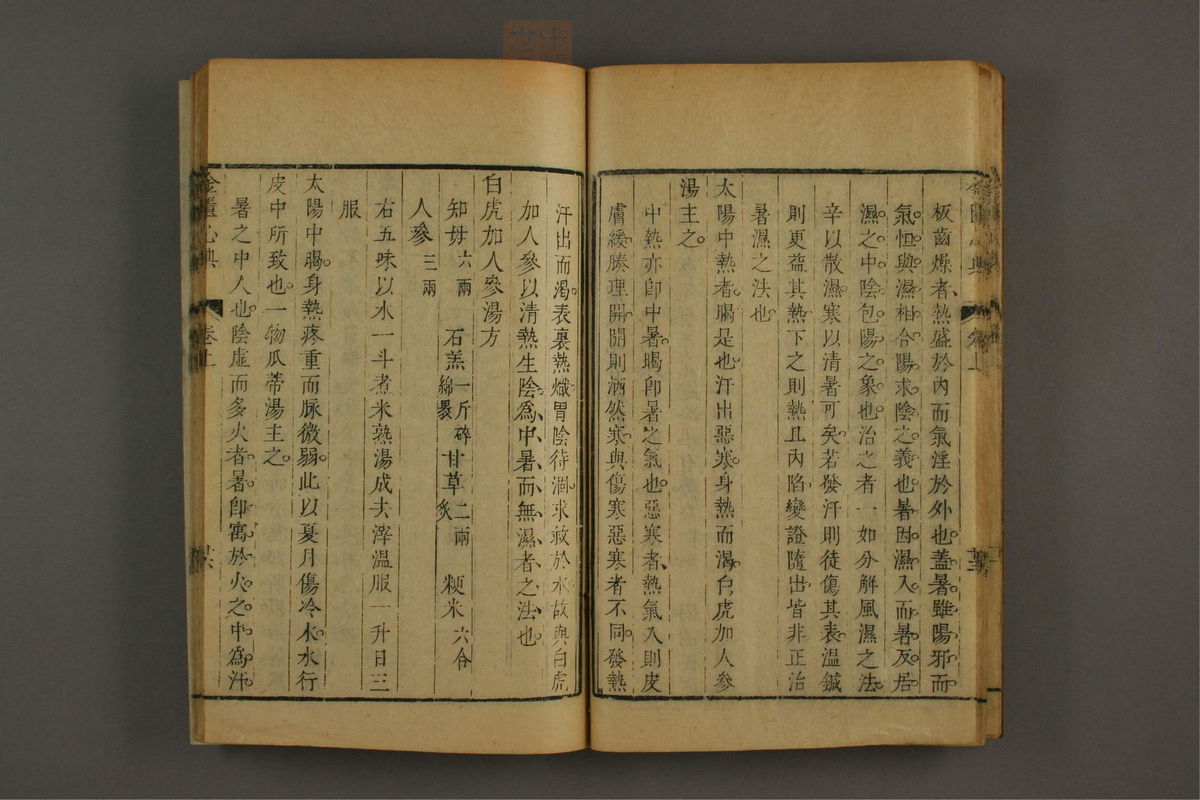 板齒燥者熱盛於內而氣淫於外也蓋暑雖陽邪而
氣恒與濕相合陽求陰之義也暑因濕入而暑反居
濕之中陰包陽之象也治之者一如分解風濕之法
辛以散濕寒以清暑可矣若發汗則徒傷其表溫鍼
則更益其熱下之則熱且內陷變證隨出皆非正治
暑濕之法也
太陽中熱者暍是也汗出惡寒身熱而渴白虎加人參
湯主之
中熱亦卽中暑暍卽暑之氣也惡寒者熱氣入則皮
膚緩腠理開開則洒然寒與傷寒惡寒者不同發熱
汗出而渴表裏熱熾胃陰待涸求救於水故與白虎
加人參以清熱生陰為中暑而無濕者之法也
白虎加人參湯方
知母六兩 石羔一斤碎綿裹 甘草二兩炙 粳米六合
人參三兩
右五味以水一斗煮米熟湯成去滓溫服一升日三
服
太陽中暍身熱疼重而脉微弱此以夏月傷冷水水行
皮中所致也一物瓜蒂湯主之
暑之中人也陰虛而多火者暑卽寓於火之中為汗
金匱心典 卷上